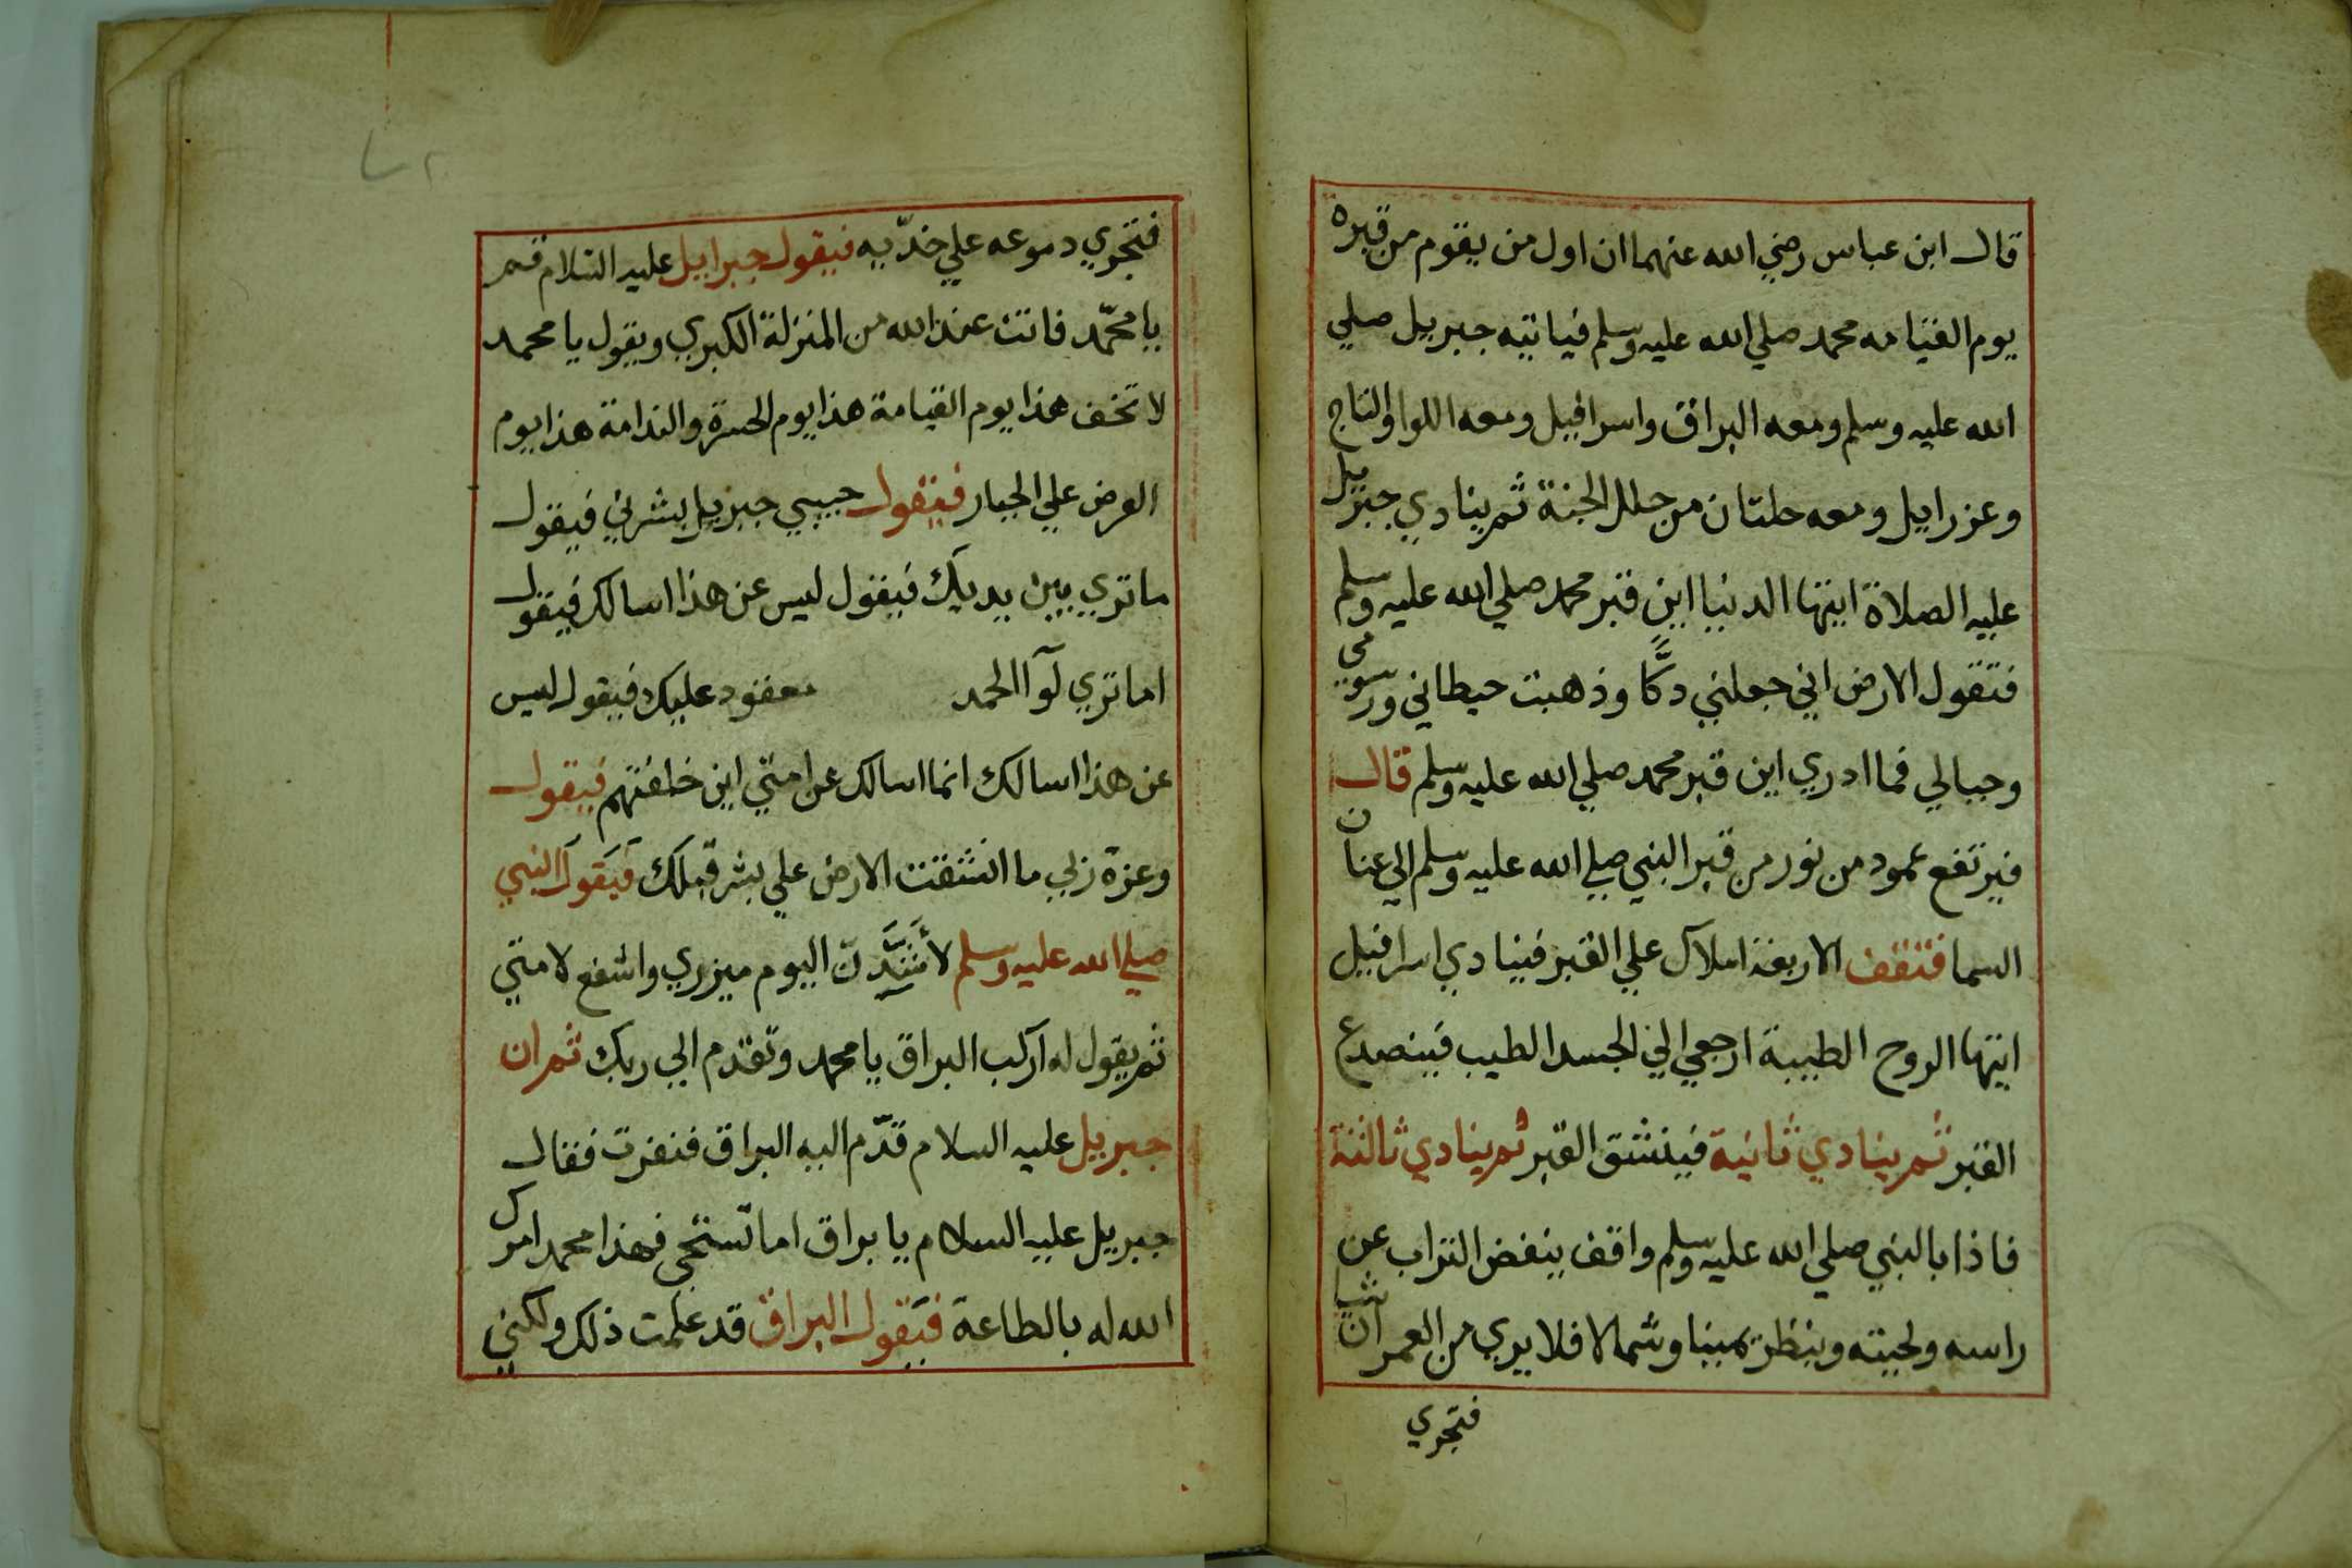 قال ابن عباس رضي الله عنهما ان اول من يقوم من قبره
يوم القيامه محمد صلي الله عليه وسلم فياتيه جبريل صلي
الله عليه وسلم ومعه البراق واسرافيل ومعه اللوا والتاج
وعزرايل ومعه حلتان من حلل الجنة ثم ينادي جبريل
عليه الصلاة ايتها الدنيا اين قبر محمد صلي الله عليه وسلم
فتقول الارض اني جعلني دكًّا وذهبت حيطاني ورسومي
وجبالي فما ادري اين قبر محمد صلي الله عليه وسلم قال
فيرتفع عمود من نور من قبر النبي صلي الله عليه وسلم الي عنان
السما فتقف الاربعة املاك علي القبر فينادي اسرافيل
ايتها الروح الطيبة ارجعي الي الجسد الطيب فينصدع
القبر ثم ينادي ثانية فينشق القبر ثم ينادي ثالثة
فاذا بالنبي صلي الله عليه وسلم واقف ينفض التراب عن
راسه ولحيته وينظر يمينا وشمالا فلا يري من العمران شيا
فتجري
٧٢
فتجري دموعه علي خدّيه فيقول جبرايل عليه السلام قم
يا محمّد فانت عند الله من المنزلة الكبري ويقول يا محمد
لا تخف هذا يوم القيامة هذا يوم الحسرة والندامة هذا يوم
العرض علي الجبار فيقول حبيبي جبريل بشرني فيقول
ما تري بين يديك فيقول ليس عن هذا اسالك فيقول
اما تري لوآ الحمد معقود عليك فيقول ليس
عن هذا اسالك انما اسالك عن امتي اين خلفتهم فيقول
وعزة ربي ما انشقت الارض علي بشر قبلك فيقول النبي
صلي الله عليه وسلم لأشَدِّدَنَّ اليوم ميزري واشفع لامتي
ثم يقول له اركب البراق يا محمد وتقدم الي ربك ثم ان
جبريل عليه السلام قدّم اليه البراق فنفرت فقال
جبريل عليه السلام يا براق اما تستحي فهذا محمد امرك
الله له بالطاعة فيقول البراق قد علمت ذلك ولكني